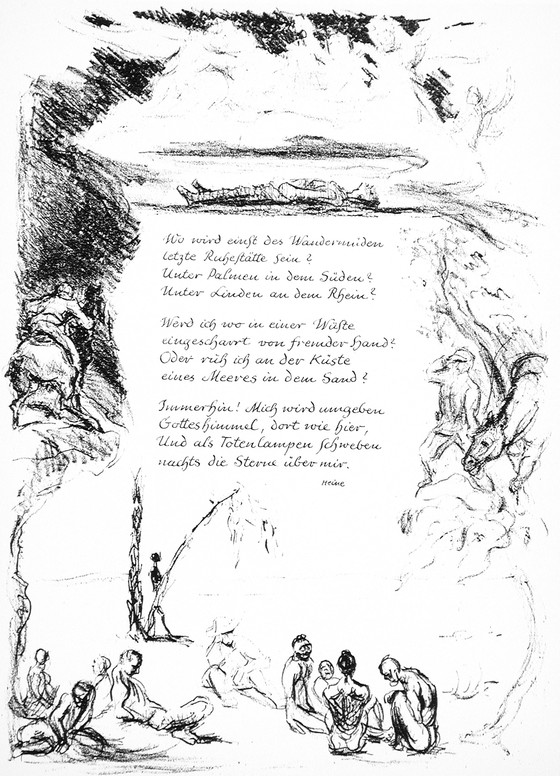 Wo wird einst des Wandermüden
letzte Ruhestätte sein?
Unter Palmen in dem Süden?
Unter Linden an dem Rhein?
Werd ich wo in einer Wüste
eingescharrt von fremder Hand?
Oder ruh ich an der Küste
eines Meeres in dem Sand?
Immerhin! Mich wird umgeben
Gotteshimmel, dort wie hier,
Und als Totenlampen schweben
nachts die Sterne über mir.
Heine